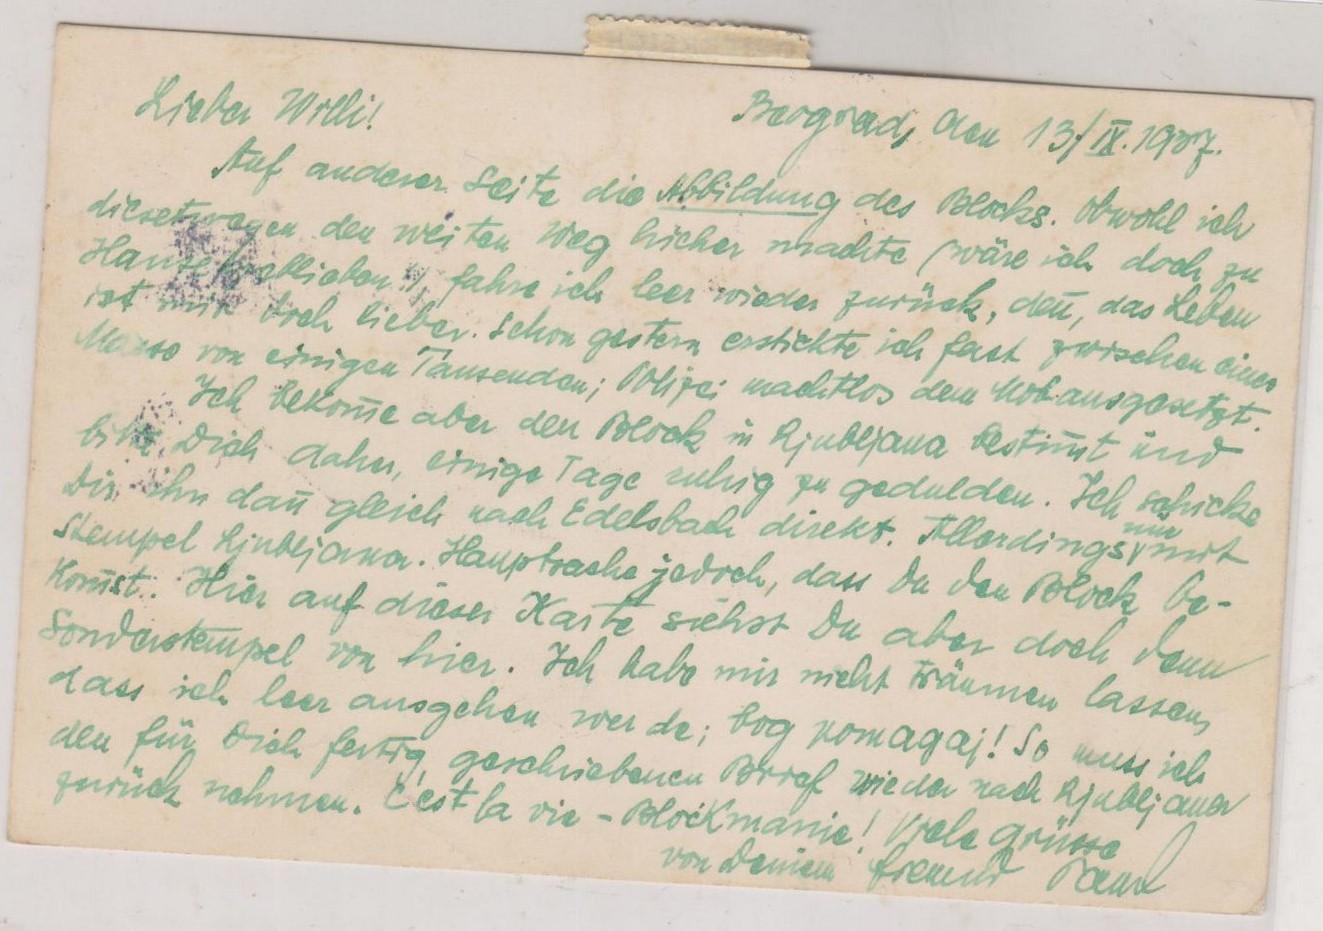 Lieber Willi!
Beograd, den 13/IX. 1937.
Auf anderer Seite die Abbildung des Blocks. Obwohl ich
diesetwegen den weiten Weg hieher machte (wäre ich doch zu
Hause geblieben!), fahre ich leer wieder zurück, den̄, das Leben
ist mir doch lieber. Schon gestern erstickte ich fast zwischen einer
Masse von einigen Tausenden; Polizei machtlos dem Mob ausgesetzt.
Ich bekom̄e aber den Block in Ljubljana bestim̄t und
bitte Dich daher, einige Tage ruhig zu gedulden. Ich schicke
Dir ihn dan̄ gleich nach Edelsbach direkt. Allerdings nur mit
Stempel Ljubljana. Hauptsache jedoch, dass Du den Block be-
kom̄st. Hier auf dieser Karte siehst Du aber doch den
Sonderstempel von hier. Ich habe mir nicht träumen lassen,
dass ich leer ausgehen werde; bog pomagaj! So muss ich
den für Dich fertig geschriebenen Brief wieder nach Ljubljana
zurück nehmen. C'est la vie - Blockmanie! Viele Grüsse
von Deinem Freund